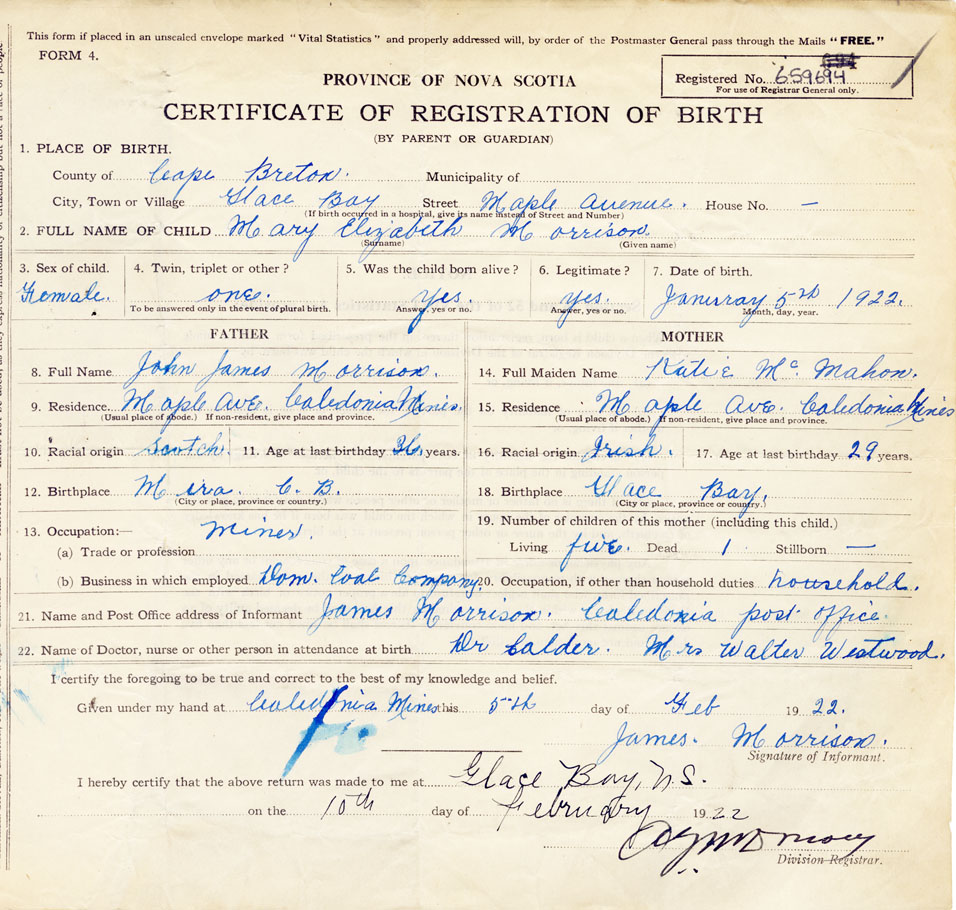 This form if placed in an unsealed envelope marked "Vital Statistics" and properly addressed will, by order of the Postmaster General pass through the Mails "FREE."
FORM 4.
PROVINCE OF NOVA SCOTIA
Registered No. 659694
For use of Registrar General only.
CERTIFICATE OF REGISTRATION OF BIRTH
(BY PARENT OR GUARDIAN)
1. PLACE OF BIRTH.
County of Cape Breton. Municipality of
City, Town or Village Glace Bay Street Maple Avenue. House No. —
(If birth occurred in a hospital, give its name instead of Street and Number)
2. FULL NAME OF CHILD Mary Elizabeth Morrison.
(Surname) (Given name)
3. Sex of child. 4. Twin, triplet or other? 5. Was the child born alive? 6. Legitimate? 7. Date of birth.
Female. one. Yes. Yes. Januray 5th 1922.
To be answered only in the event of plural birth. Answer, yes or no. Answer, yes or no. Month, day, year.
FATHER MOTHER
8. Full Name John James Morrison. 14. Full Maiden Name Katie Mc Mahon.
9. Residence Maple Ave. Caledonia Mines. 15. Residence Maple Ave. Caledonia Mines
(Usual place of abode.) If non-resident, give place and province. (Usual place of abode.) If non-resident, give place and province.
10. Racial origin Scotch. 11. Age at last birthday 36 years. 16. Racial origin Irish. 17. Age at last birthday 29 years.
12. Birthplace Mira. C. B. 18. Birthplace Glace Bay.
(City or place, province or country.) (City or place, province or country.)
13. Occupation:— Miner. 19. Number of children of this mother (including this child.)
(a) Trade or profession Living five. Dead 1 Stillborn —
(b) Business in which employed Dom. Coal Company. 20. Occupation, if other than household duties household.
21. Name and Post Office address of Informant James Morrison. Caledonia post office.
22. Name of Doctor, nurse or other person in attendance at birth Dr Calder. Mrs Walter Westwood.
I certify the foregoing to be true and correct to the best of my knowledge and belief.
Given under my hand at Caledonia Mines this 5th day of Feb 1922.
James. Morrison.
Signature of Informant.
I hereby certify that the above return was made to me at Glace Bay, N.S.
on the 10th day of February 1922
Division Registrar.